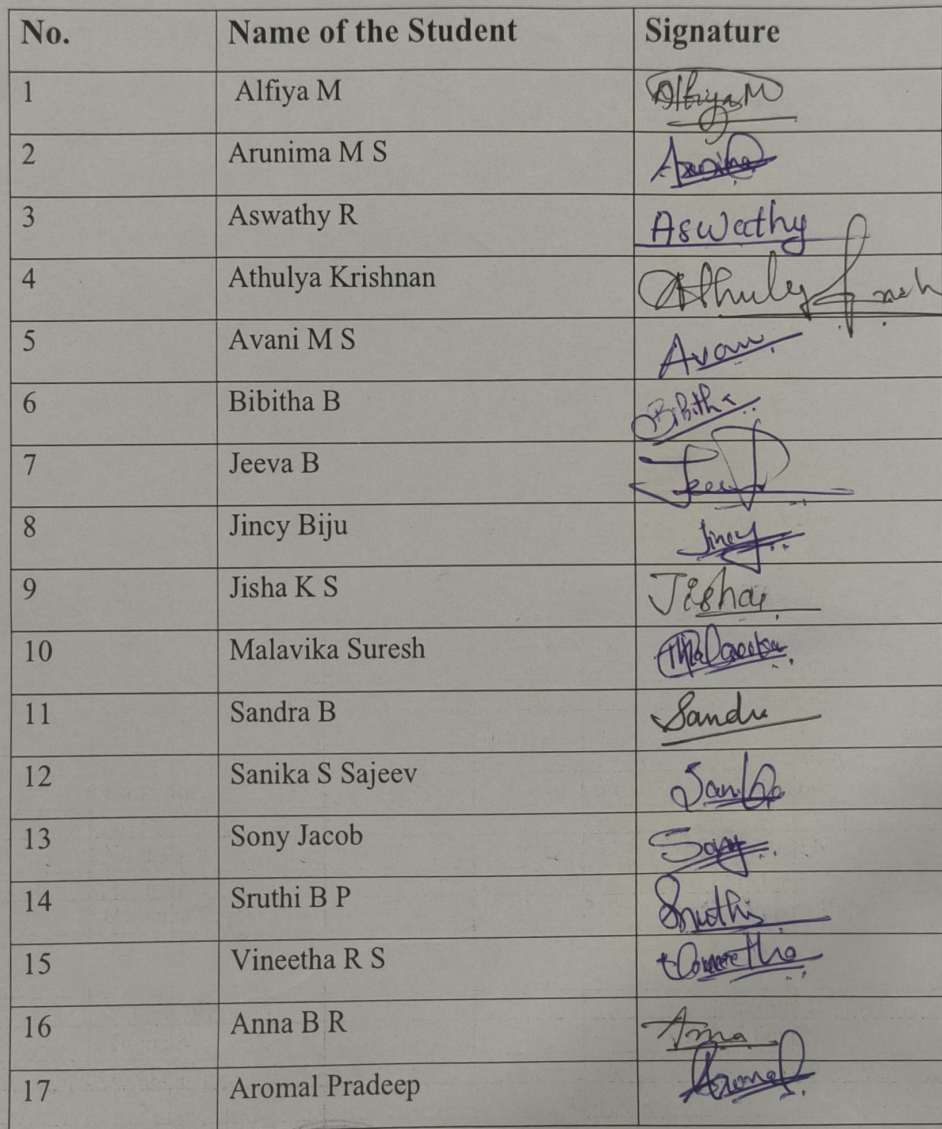 No. Name of the Student Signature
1 Alfiya M Alfiya M
2 Arunima M S Arunima
3 Aswathy R Aswathy
4 Athulya Krishnan
5 Avani M S Avani
6 Bibitha B Bibitha
7 Jeeva B
8 Jincy Biju Jincy
9 Jisha K S Jisha
10 Malavika Suresh Malavika
11 Sandra B Sandra
12 Sanika S Sajeev Sanika
13 Sony Jacob Sony
14 Sruthi B P Sruthi
15 Vineetha R S
16 Anna B R Anna
17 Aromal Pradeep Aromal